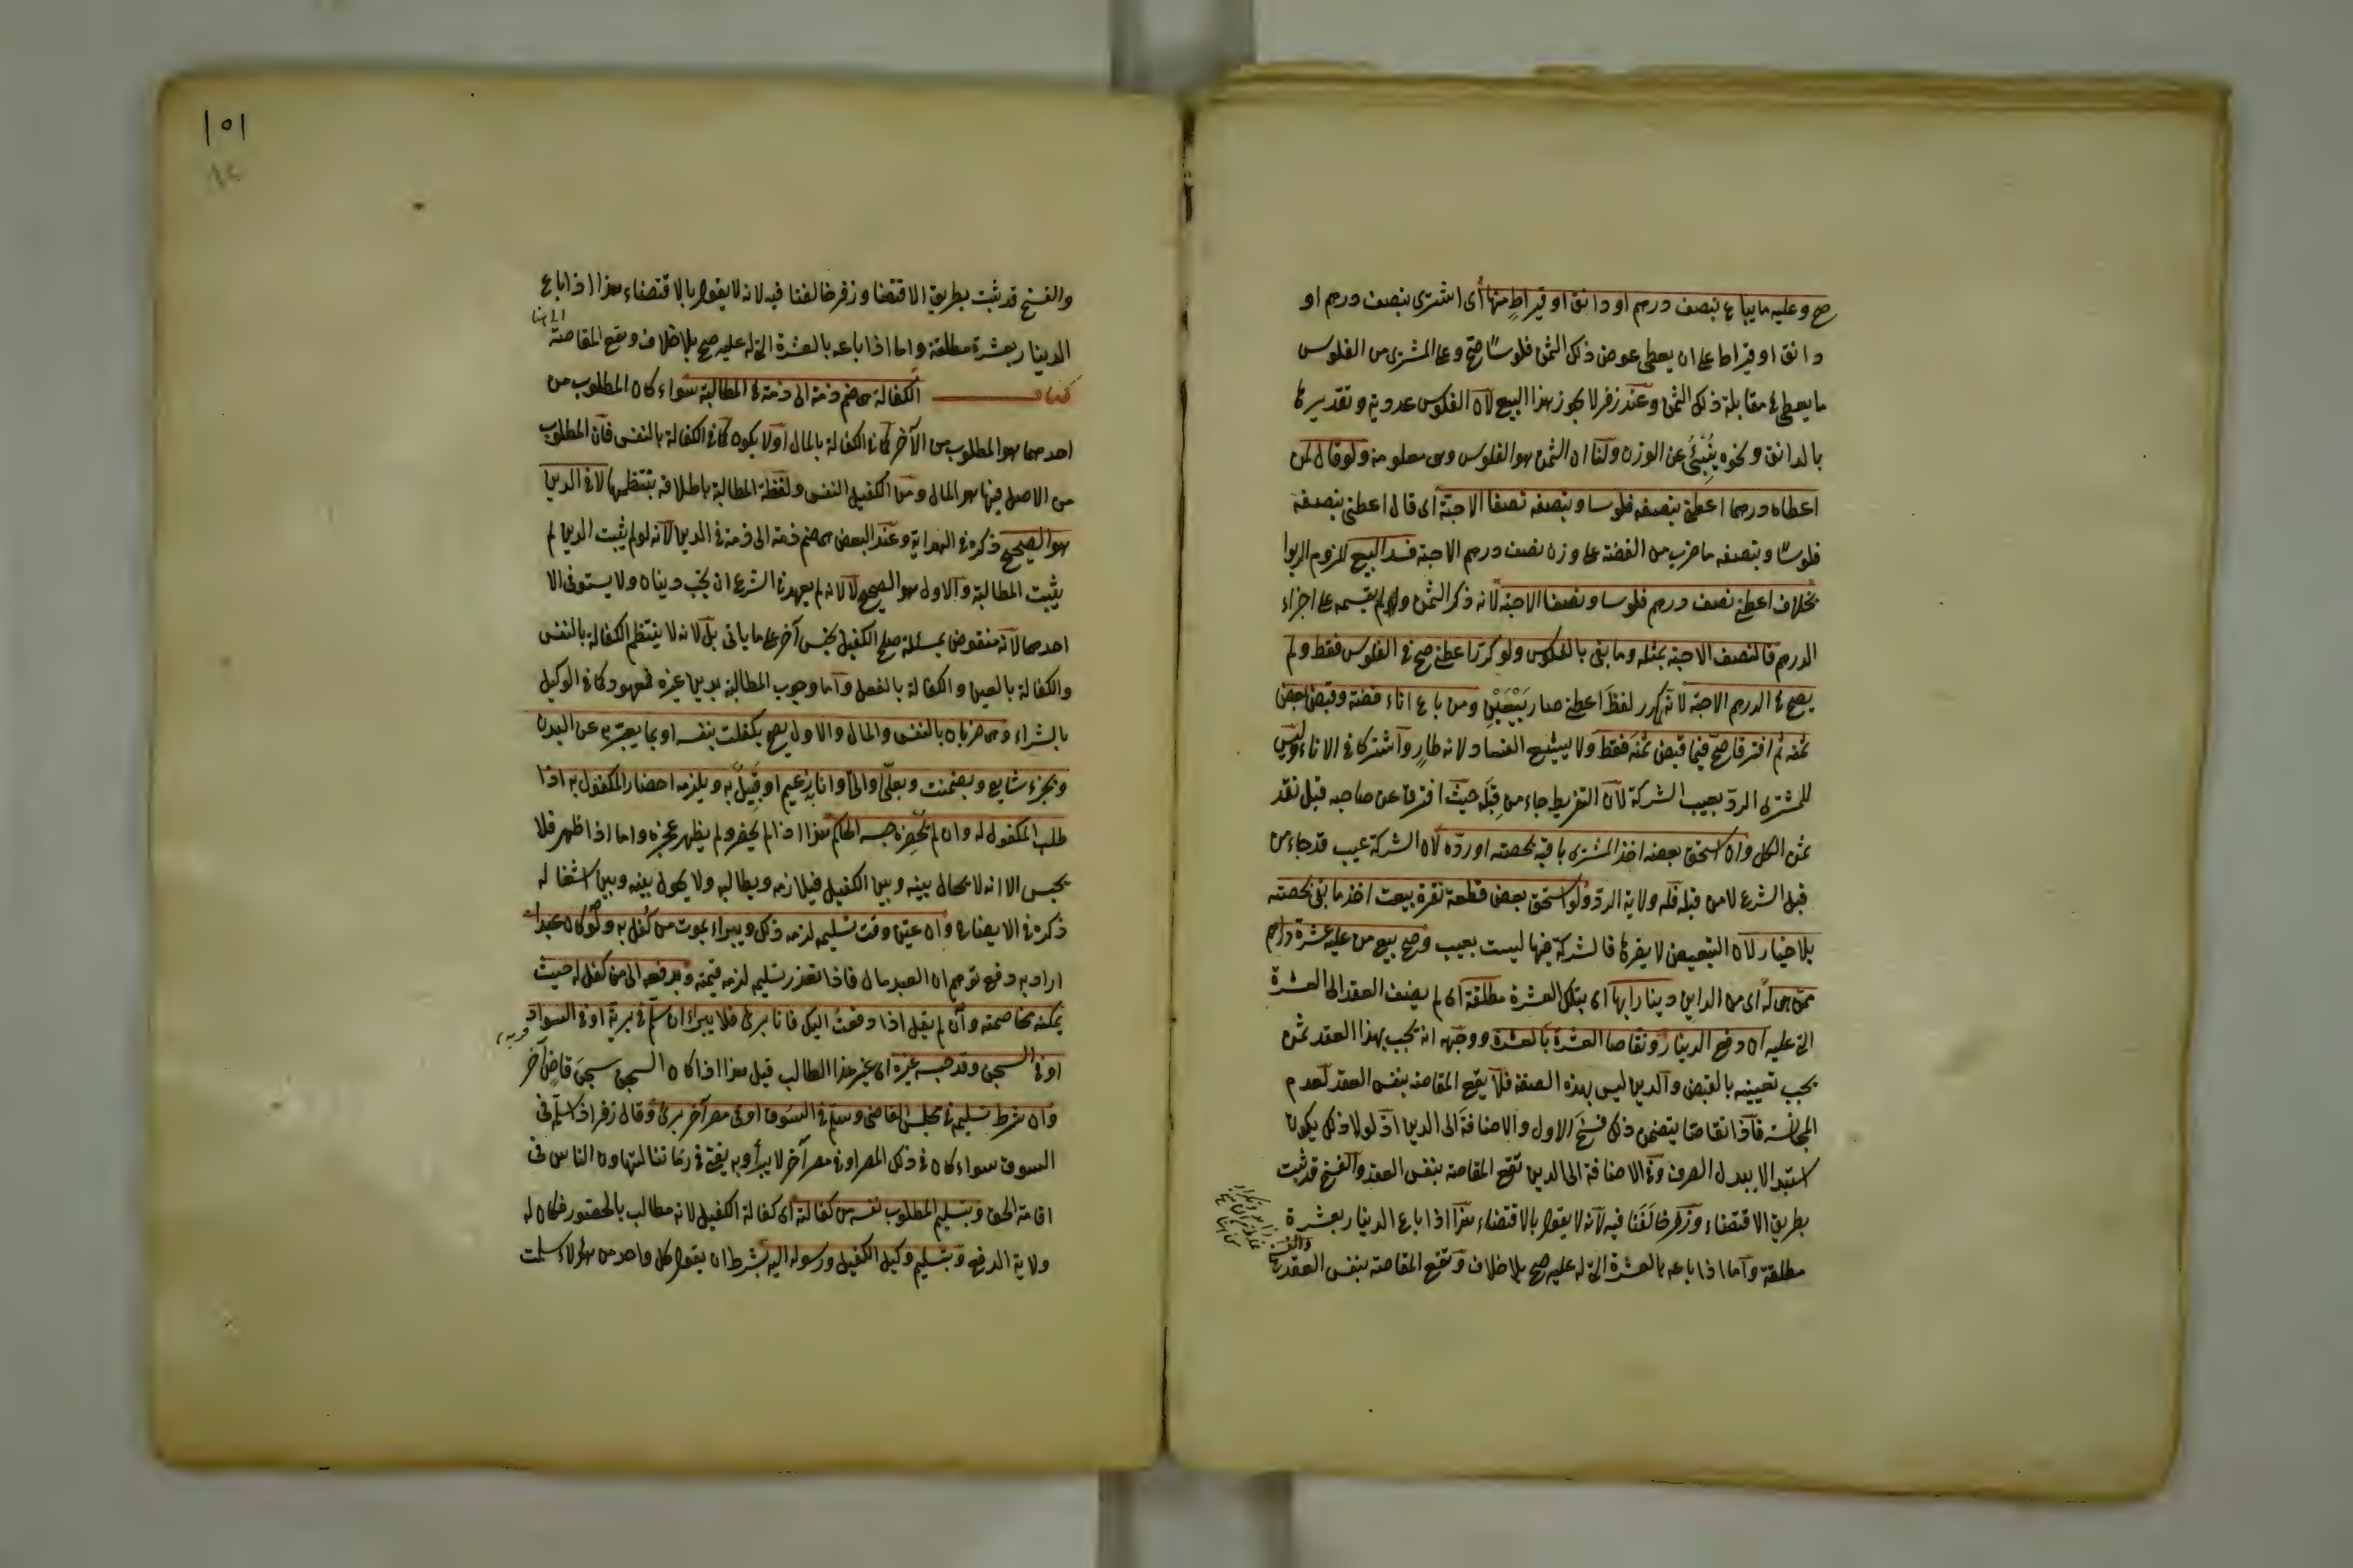 صح وعليه ما يباع بنصف درهم او دانق او قيراط منها أى اشترى بنصف درهم او
دانق او قيراط على ان يعطى عوض ذلك الثمن فلوسًا صح وعلى المشترى من الفلوس
ما يعطى فى مقابلة ذلك الثمن وعند زفر لا يجوز هذا البيع لان الفلوس عددية وتقديرها
بالدانق ونحوه يُنْبِئُ عن الوزن ولنا ان الثمن هو الفلوس وهى معلومة ولو قال لمن
اعطاه درهما اعطنى بنصفه فلوسا وبنصفه نصفا الا حبة اى قال اعطنى بنصفه
فلوسًا وبنصفه ما ضرب من الفضة على وزن نصف درهم الا حبة فسد البيع للزوم الربوا
بخلاف اعطنى نصف درهم فلوسا ونصفا الا حبة لانه ذكر الثمن ولم يقسمه على اجزاء
الدرهم فالنصف الا حبة بمثله وما بقى بالفلوس ولو كرر اعطنى صح فى الفلوس فقط ولم
يصح فى الدرهم الا حبة لانه لما كرر لفظ اعطنى صار بَيْعَيْنِ ومن باع اناء فضة وقبض بعض
ثمنه ثم افترقا صح فيما قبض ثمنه فقط ولا يشيع الفساد لانه طارٍ واشتركا فى الاناء وليس
للمشترى الرد بعيب الشركة لان التفريط جاء من قِبَله حيث افترق عن صاحبه قبل نقد
ثمن الكل وان استحق بعضه اخذ المشترى باقيه بحصته او رده لان الشركة عيب قد جاء من
قبل الشرع لا من قبله فله ولاية الرد ولو استحق بعض قطعة نقرة بيعت اخذ ما بقى بحصته
بلا خيار لان التبعيض لا يضرها فالشركة فيها ليست بعيب وصح بيع من عليه عشرة دراهم
ممن هى له أى من الداين دينارا بها اى بتلك العشرة مطلقة اى لم يضف العقد الى العشرة
التى عليه ان دفع الدينار وتقاصا العشرة بالعشرة ووجهه انه يجب بهذا العقد ثمن
يجب تعيينه بالقبض والدين ليس بهذه الصفة فلا يقع المقاصة بنفس العقد لعدم
المجانسة فاذا تقاصا يتضمن ذلك فسخ الاول والاضافة الى الدين اذ لولا ذلك يكون
استبدالا ببدل الصرف وفى الاضافة الى الدين تقع المقاصة بنفس العقد والفسخ قد ثبت
بطريق الاقتضاء وزفر خالفنا فيه لانه لا يقول بالاقتضاء هذا اذا باع الدينار بعشرة
مطلقة وأما اذا باعه بالعشرة التى له عليه صح بلا خلاف وتقع المقاصة بنفس العقد
١٥١
والفسخ قد ثبت بطريق الاقتضا وزفر خالفنا فيه لانه لا يقول بالاقتضاء هذا اذا باع
الدينار بعشرة مطلقة واما اذا باعه بالعشرة التى له عليه صح بلا خلاف ويقع المقاصة
كتاب الكفالة هى ضم ذمة الى ذمة فى المطالبة سواء كان المطلوب من
احدهما هو المطلوب من الآخر كما فى الكفالة بالمال او لا يكون كما فى الكفالة بالنفس فان المطلوب
من الاصل فيها هو المال ومن الكفيل النفس ولفظة المطالبة باطلاقه ينتظمها لا فى الدين
هو الصحيح ذكره فى الهداية وعند البعض هى ضم ذمة الى ذمة فى الدين لانه لو لم يثبت الدين لم
يثبت المطالبة والاول هو الصحيح لا لانه لم يعهد فى الشرع ان يجب دينان ولا يستوفى الا
احدهما لانه منقوض بمسئلة صلح الكفيل بجنس آخر على ما يأتى بل لانه لا ينتظم الكفالة بالنفس
والكفالة بالعين والكفالة بالفعل وأما وجوب المطالبة بدين غيره فمعهود كما فى الوكيل
بالشراء وهى ضربان بالنفس والمال والاول يصح بكفلت بنفسه او بما يعبّر به عن البدن
وبجزء شايع وبضمنت وبعلىّ والىّ وانا به زعيم او قبيل به ويلزمه احضار المكفول به اذا
طلب المكفول له وان لم يحضره حبسه الحاكم هذا اذا لم يحضر ولم يظهر عجزه واما اذا ظهر فلا
يحبس الا انه لا يحال بينه وبين الكفيل فيلازمه ويطالبه ولا يحول بينه وبين اشغاله
ذكره فى الايضاح وان عين وقت تسليمه لزمه ذلك ويبراء بموت من كفل به ولو كان عبدا
اراد به دفع توهم ان العبد مال فاذا تعذر تسليمه لزمه قيمته وبدفعه الى من كفل له حيث
يمكنه مخاصمته وان لم يقل اذا دفعتُ اليك فانا برئ فلا يبراء ان سلّم فى برية او فى السواد
او فى السجن وقد حبسه غيره اى غير هذا الطالب قيل هذا اذا كان السجن سجن قاض آخر
وان شرط تسليمه فى مجلس القاضى وسلم فى السوق او فى مصر آخر برئ وقال زفر اذا سلّم فى
السوق سواء كان فى ذلك المصر او فى مصر آخر لا يبرأ وبه يفتى فى زماننا لتهاون الناس فى
اقامة الحق وبتسليم المطلوب نفسه من كفالته اى كفالة الكفيل لانه مطالب بالحضور فكان له
ولاية الدفع وبتسليم وكيل الكفيل ورسوله اليه بشرط ان يقول كل واحد من هؤلاء سلمت